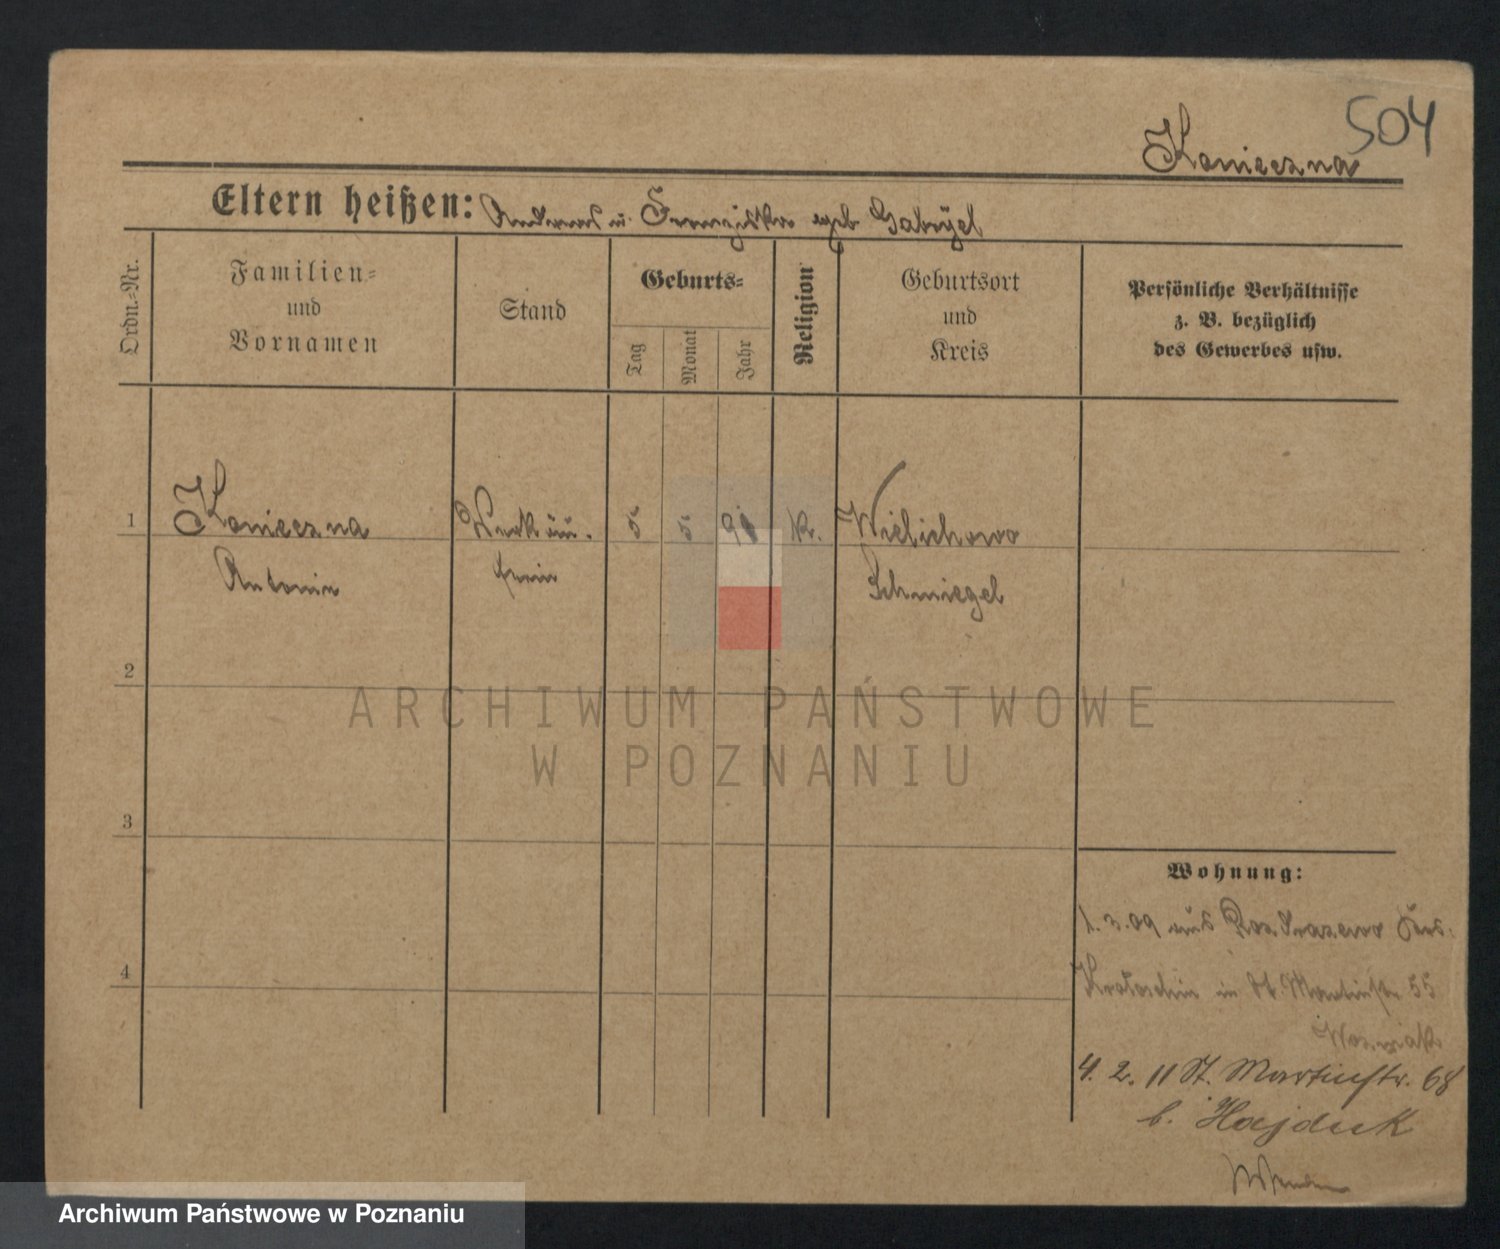 504
Konieczna
Eltern heißen: Andreas u. Franziska geb Gabryel
Ordn.-Nr.
Familien-
und
Vornamen
Stand
Geburts-
Tag
Monat
Jahr
Religion
Geburtsort
und
Kreis
Persönliche Verhältnisse
z. B. bezüglich
des Gewerbes usw.
1
Konieczna
Antonie
Verkäu-
ferin
5
5
91
k.
Wielichowo
Schmiegel
2
3
4
Wohnung:
1. 3. 09 aus Rozdrazewo Krs.
Krotoschin in St. Martinstr 55
Wozniak
4. 2. 11 St. Martinstr. 68
b. Hajduk
ARCHIWUM PAŃSTWOWE
W POZNANIU
Archiwum Państwowe w Poznaniu